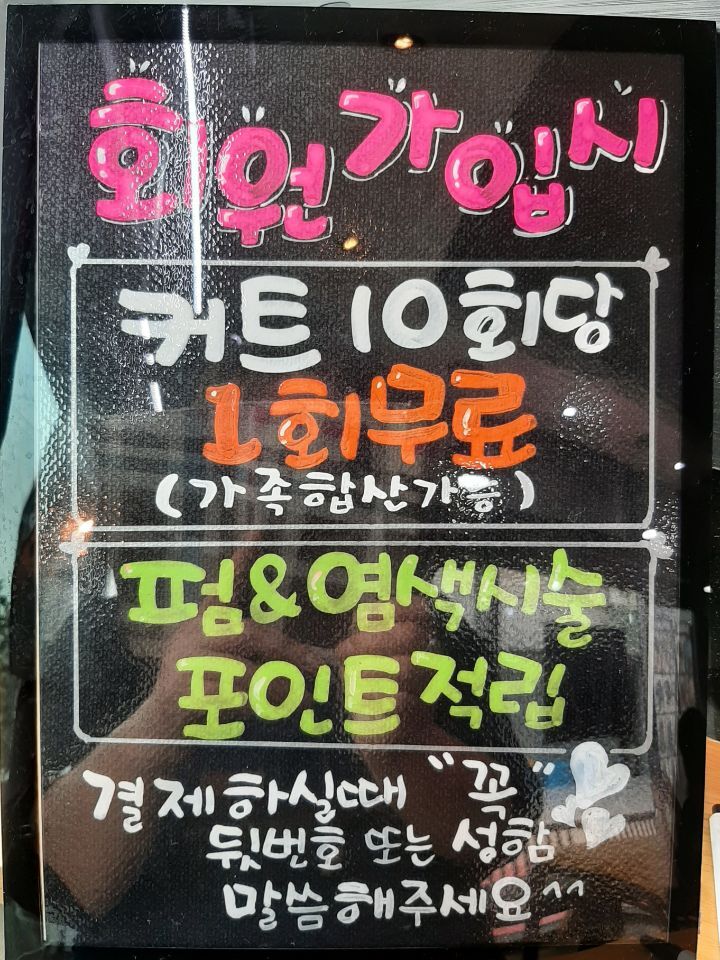 회원가입시
커트 10회당
1회무료
(가족합산가능)
펌&염색시술
포인트적립
결제하실때 "꼭"
뒷번호 또는 성함
말씀해주세요^^